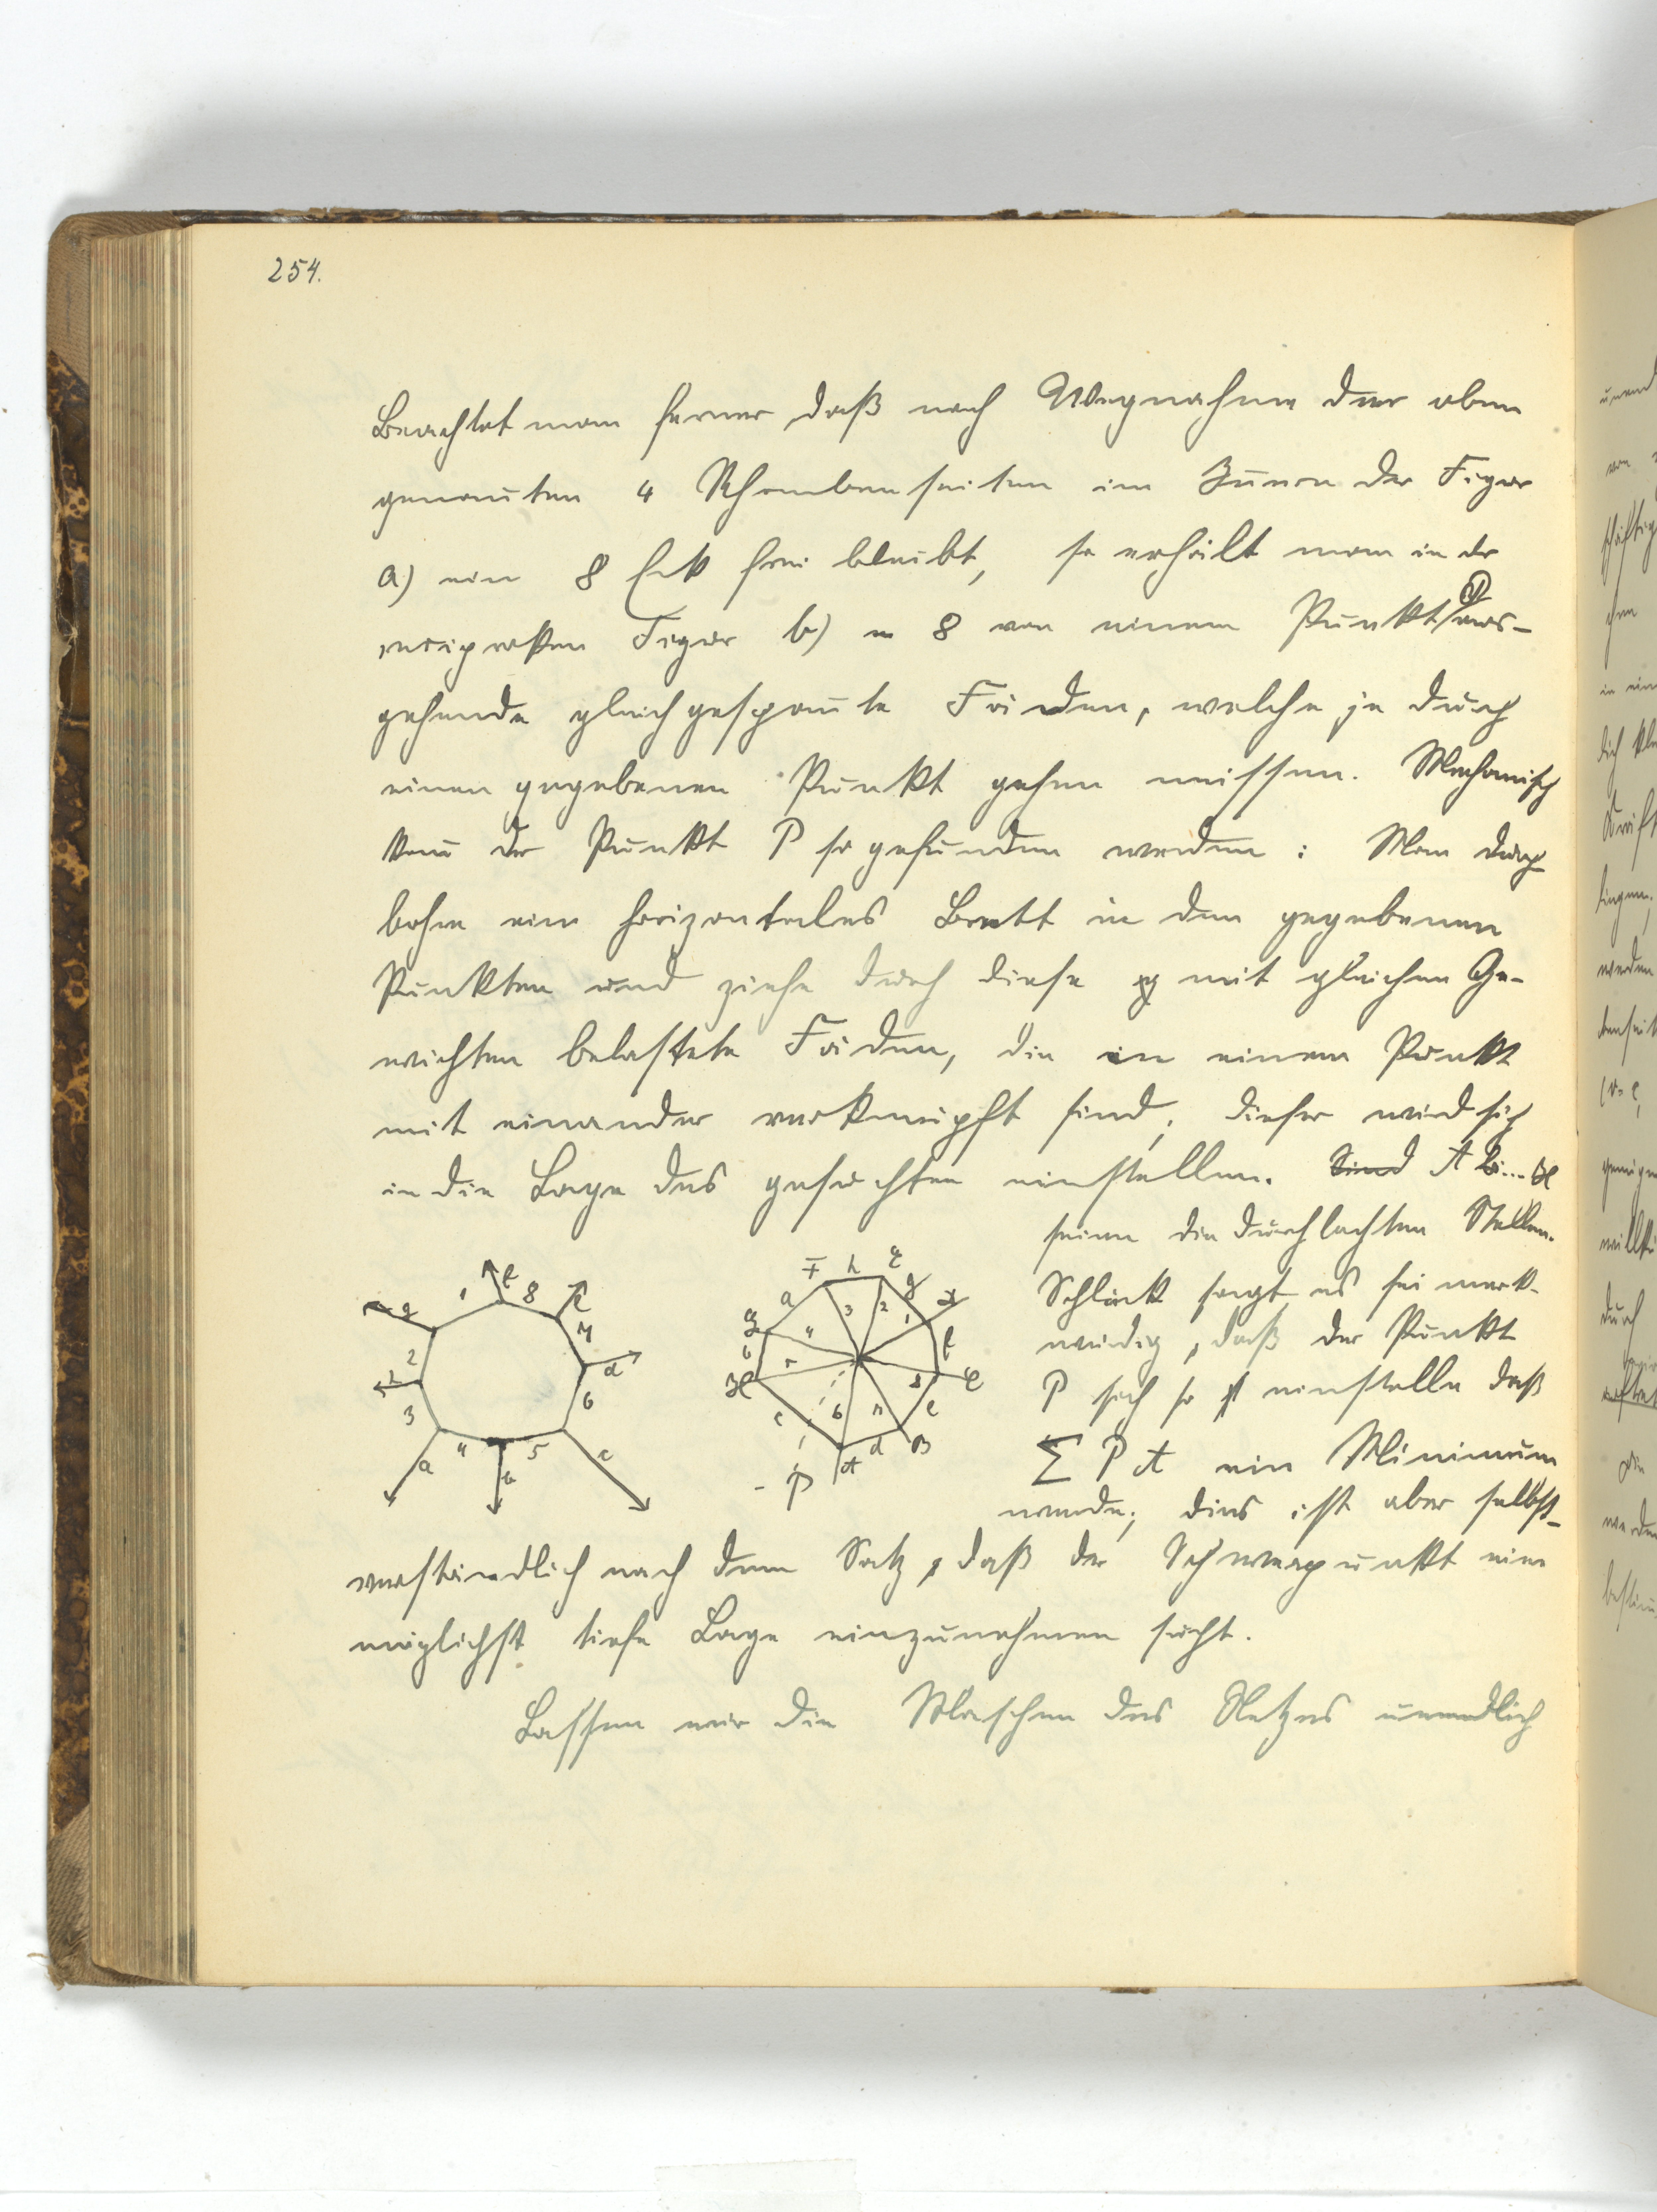 254.
Beachtet man ferner daß nach Wegnahme der oben
genannten 4 Rhombenseiten im Innern der Figur
a) ein 8 Eck frei bleibt, so erhält man in der
reciproken Figur b) 8 von einem Punkt P aus-
gehende gleichgespannte Fäden, welche je durch
einen gegebenen Punkt gehen müssen. Mechanisch
kann der Punkt P so gefunden werden: Man durch
bohre ein horizontales Brett in den gegebenen
Punkten und ziehe durch diese mit gleichen Ge-
wichten belastete Fäden, die in einem Punkt
mit einander verknüpft sind; dieser wird sich
in die Lage des gesuchten einstellen. Sind A B...H
seien die durchlochten Stellen.
Schlink sagt es sei merk-
würdig, daß der Punkt
P sich so einstelle daß
∑ P A ein Minimum
werde; dies ist aber selbst-
verständlich nach dem Satz, daß der Schwerpunkt eine
möglichst tiefe Lage einzunehmen sucht.
Lassen wir die Maschen des Netzes unendlich
1 f 8 e
g 7
2 d
h 6
3
a 4 b 5 c
F h E
a g D
G 4 3 2 1 f
b 5 8 E
H e
c 6 d B
P A